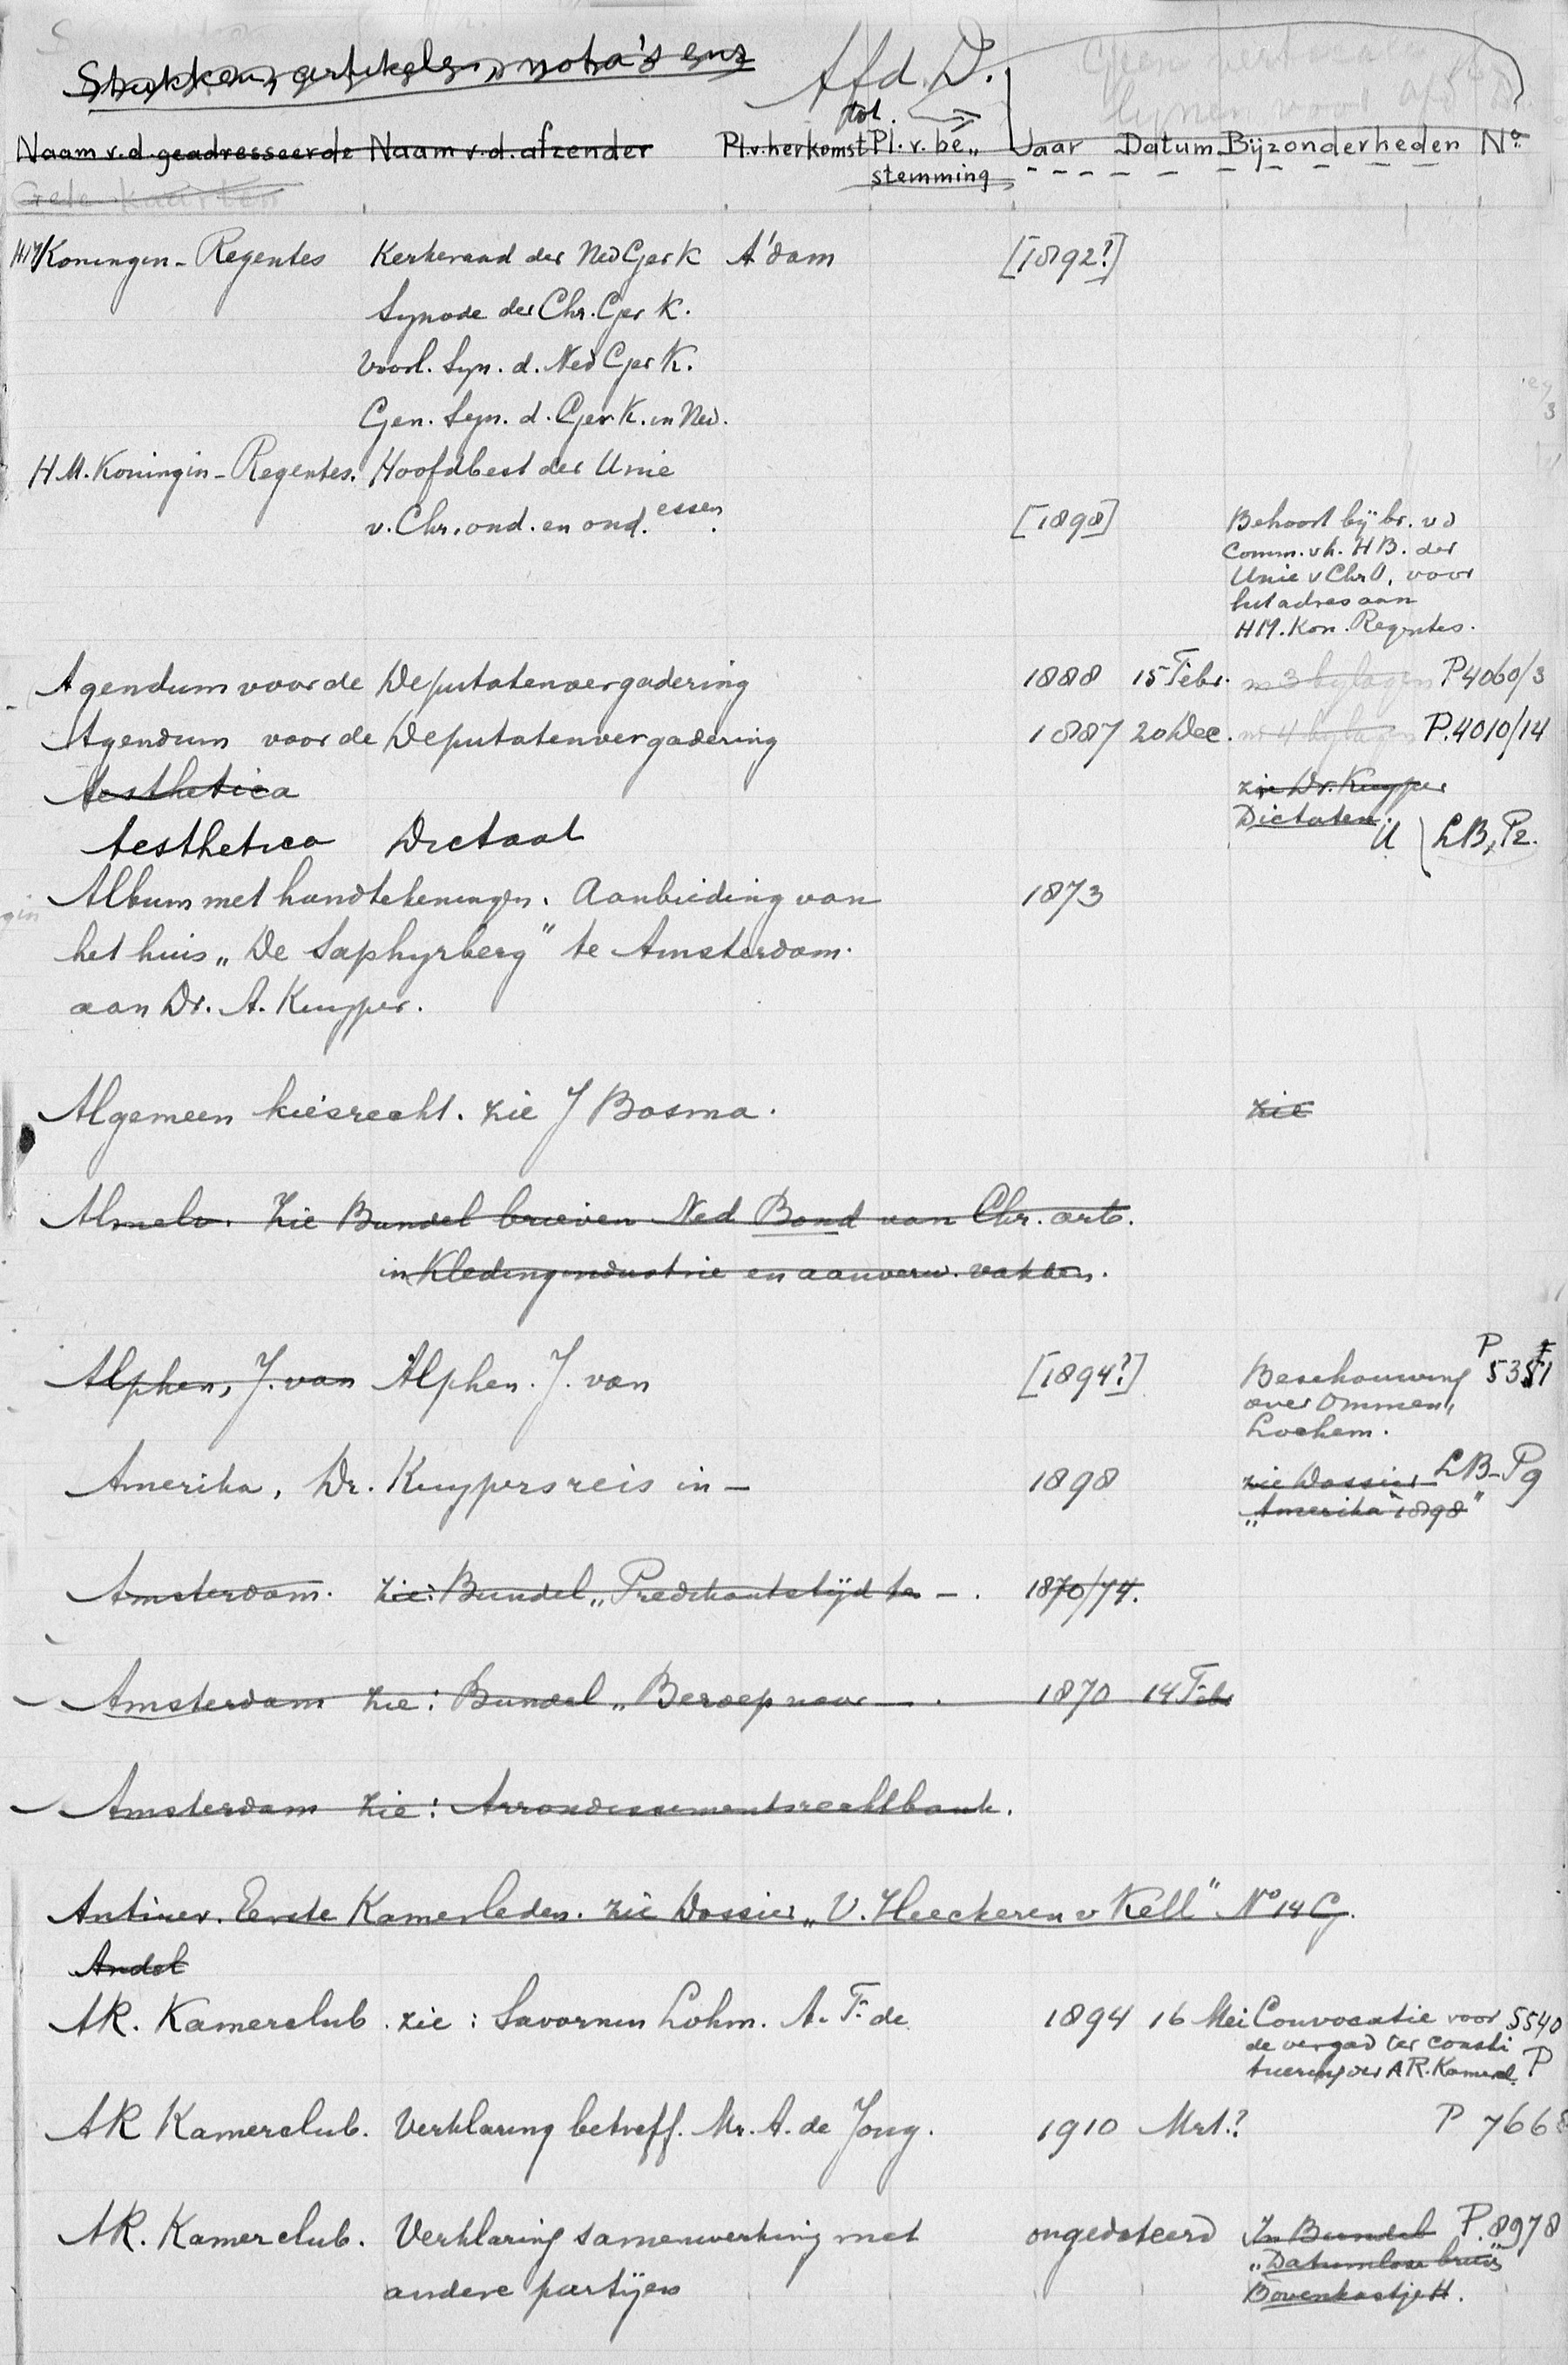 Stukken, artikelen, nota's enz
Afd. D.
tot.
Naam v.d. geadresseerde Naam v.d. afzender Pl.v.herkomst Pl. v. be„ Jaar Datum Bijzonderheden No
stemming
HM Koningin-Regentes Kerkeraad der Ned Ger K A'dam [1892?]
Synode der Chr. Ger K.
Voorl. Syn. d. Ned Ger K.
Gen. Syn. d. Ger K. in Ned.
H.M. Koningin-Regentes. Hoofdbest der Unie
v. Chr. ond. en ond.essen. [1898] Behoort bij br. vd
Comm. v h. HB. der
Unie v Chr O, voor
het adres aan
HM. Kon. Regentes.
Agendum voor de Deputatenvergadering 1888 15 Febr. m 3 bylagen P4060/3
Agendum voor de Deputatenvergadering 1887 20 Dec. m 4 bylagen P.4010/14
Aesthetica zie Dr. Kuyper
Dictaten.
Aesthetica Dictaat U LB, P2.
Album met handtekeningen. Aanbieding van 1873
het huis „De Saphyrberg" te Amsterdam.
aan Dr. A. Kuyper.
Algemeen kiesrecht. zie J Bosma. zie
Almelo. Zie Bundel brieven Ned Bond van Chr. arb.
in Kledingindustrie en aanverw. vakken.
Alphen, J. van Alphen. J. van [1894?] Beschouwing P 5351
over Ommen,
Lochem.
Amerika, Dr. Kuypers reis in — 1898 zie Dossier LB-P9
„Amerika 1898"
Amsterdam. Zie: Bundel „Predikantstijd te — . 1870/74.
Amsterdam zie: Bundel „Beroep naar — . 1870 14 Feb
Amsterdam zie: Arrondissementsrechtbank.
Antirev. Eerste Kamerleden. zie Dossier „V. Heeckeren v Kell" No 14 G.
Andel
AR. Kamerclub. zie: Savornin Lohm. A. F. de 1894 16 Mei Convocatie voor 5540
de vergad ter consti
tuering der AR. Kamercl. P
AR Kamerclub. Verklaring betreff. Mr. A. de Jong. 1910 Mrt.? P 7668
AR. Kamerclub. Verklaring samenwerking met ongedateerd In Bundel P. 8978
„Datumloze briev"
andere partijen Bovenkastje H.